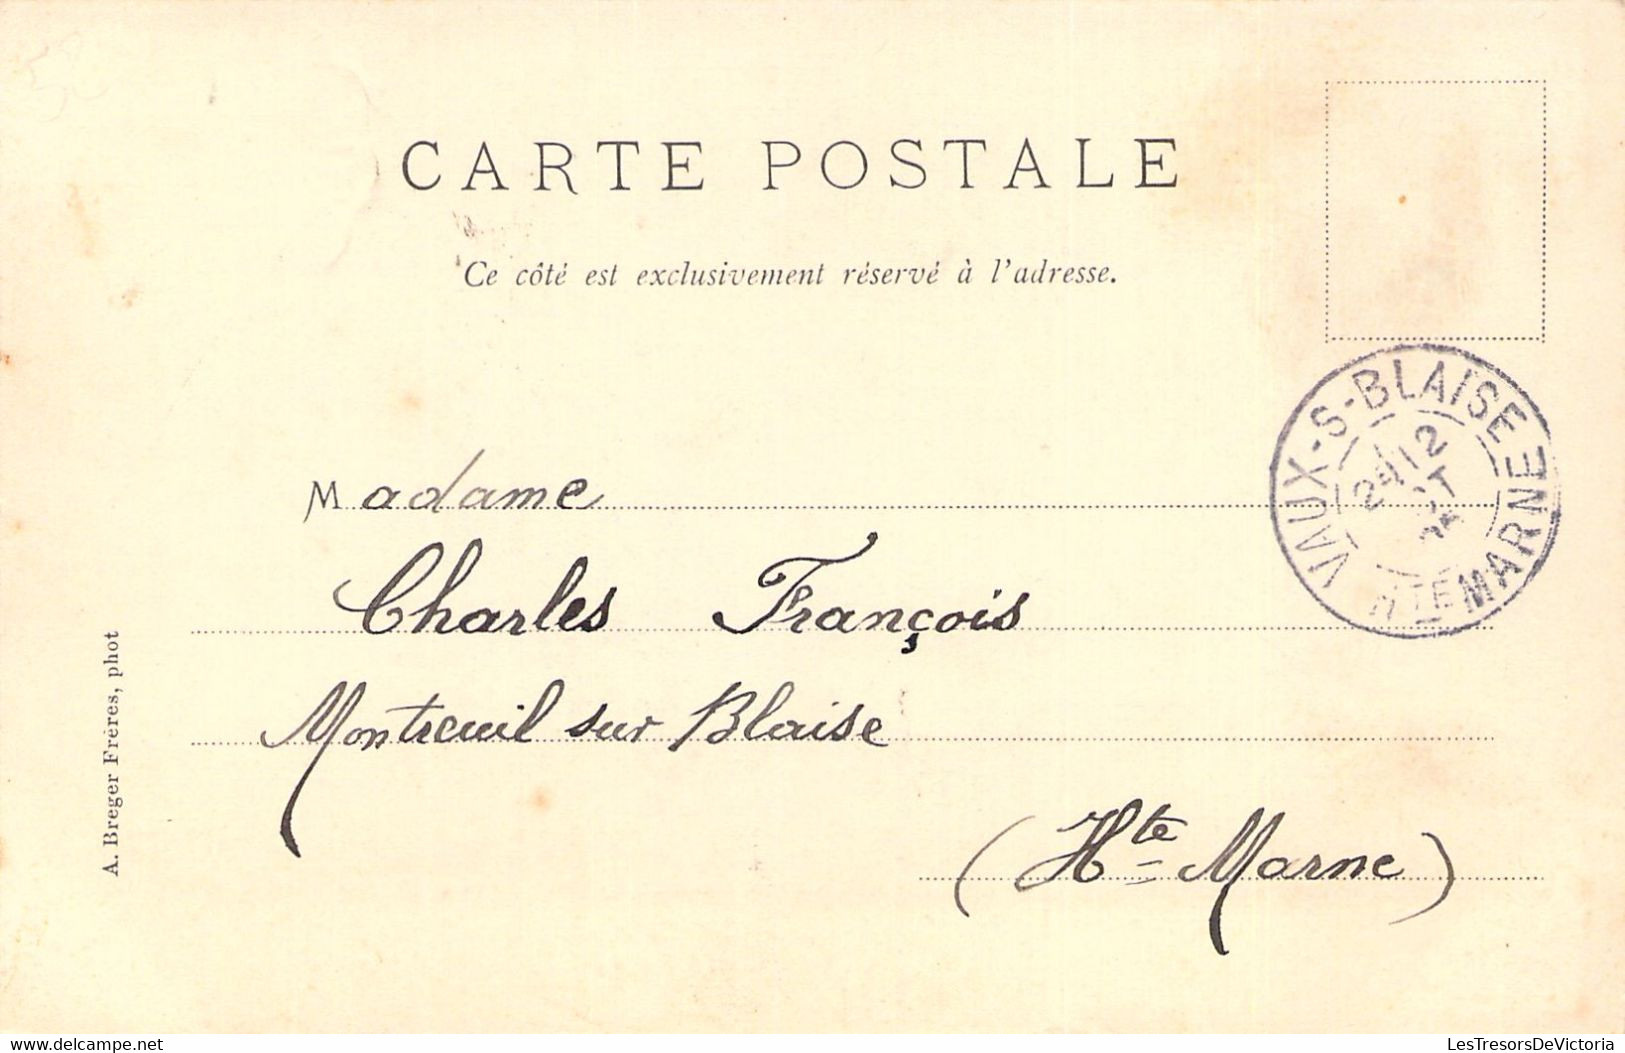 CARTE POSTALE
Ce côté est exclusivement réservé à l'adresse.
VAUX-S-BLAISE
HTE MARNE
Madame
Charles François
Montreuil sur Blaise
(Hte Marne)
A. Breger Frères, phot
delcampe.net
LesTresorsDeVictoria